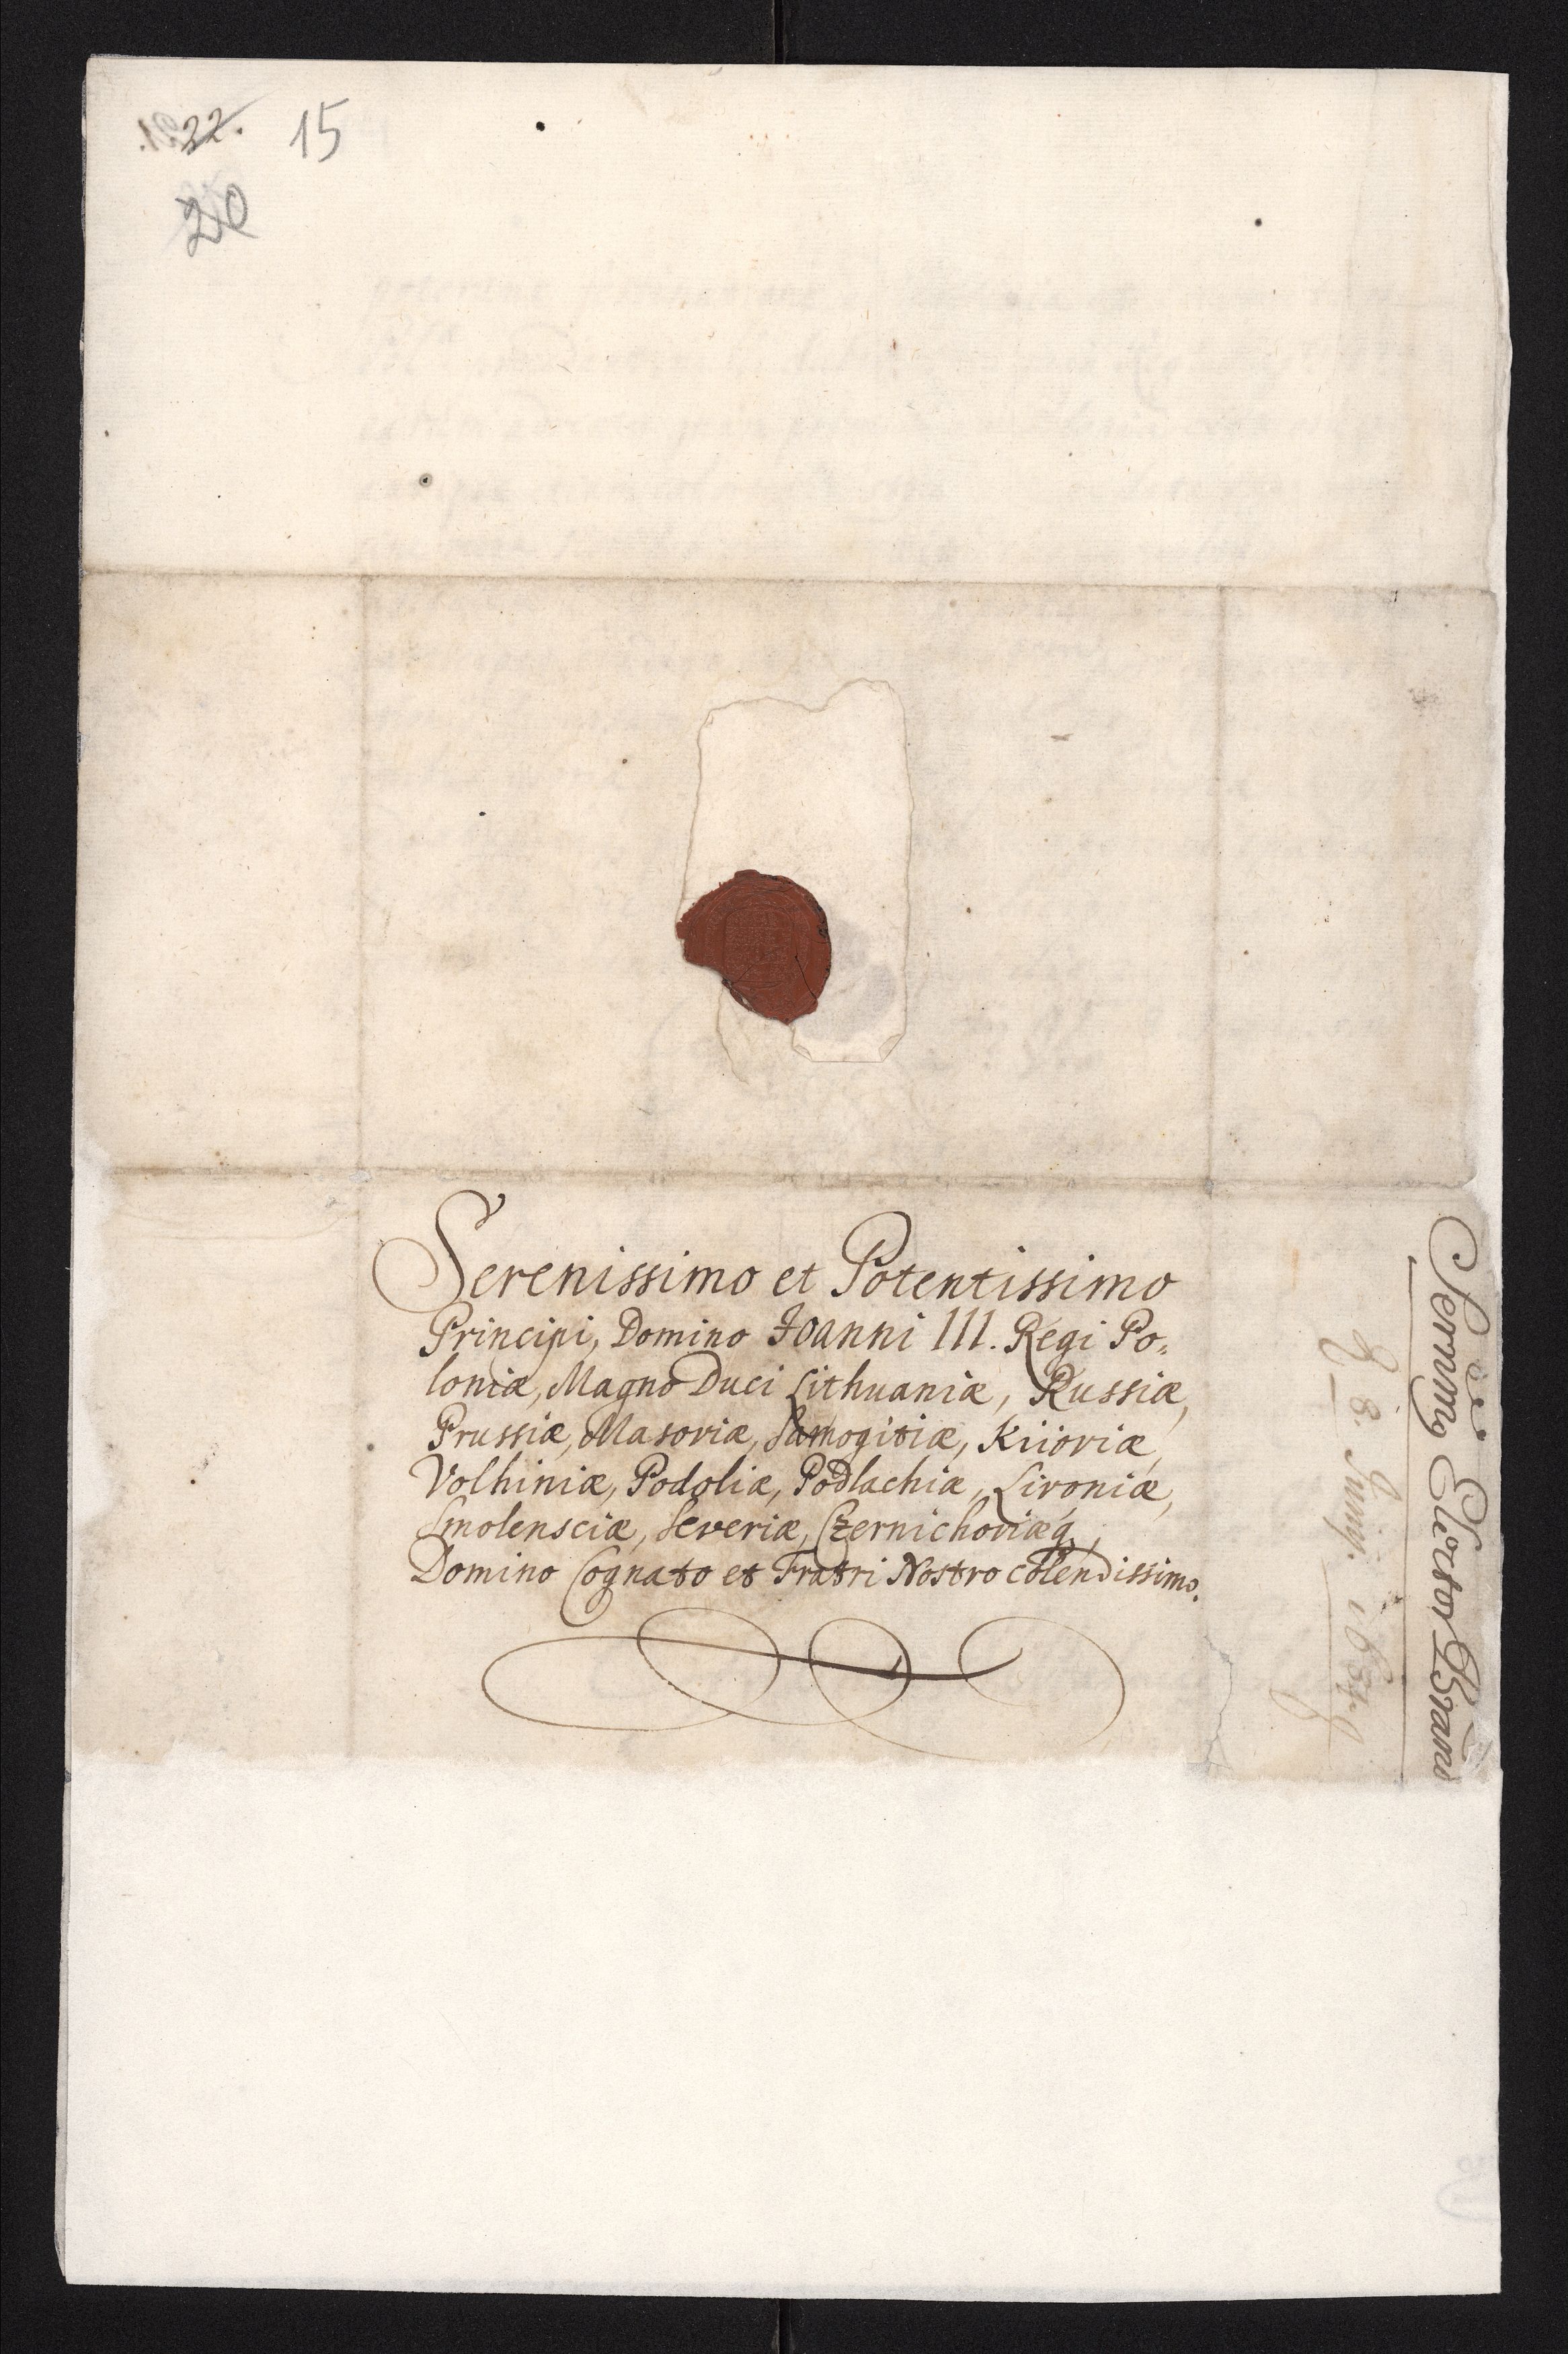 22. 15
20
Serenissimo et Potentissimo
Principi, Domino Joanni III. Regi Po=
loniæ, Magno Duci Lithuaniæ, Russiæ,
Prussiæ, Masoviæ, Samogitiæ, Kiioviæ,
Volhiniæ, Podoliæ, Podlachiæ, Livoniæ,
Smolensciæ, Severiæ, Czernichoviæq,,
Domino Cognato et Fratri Nostro colendissimo.
Elector Brand
8. Junij.